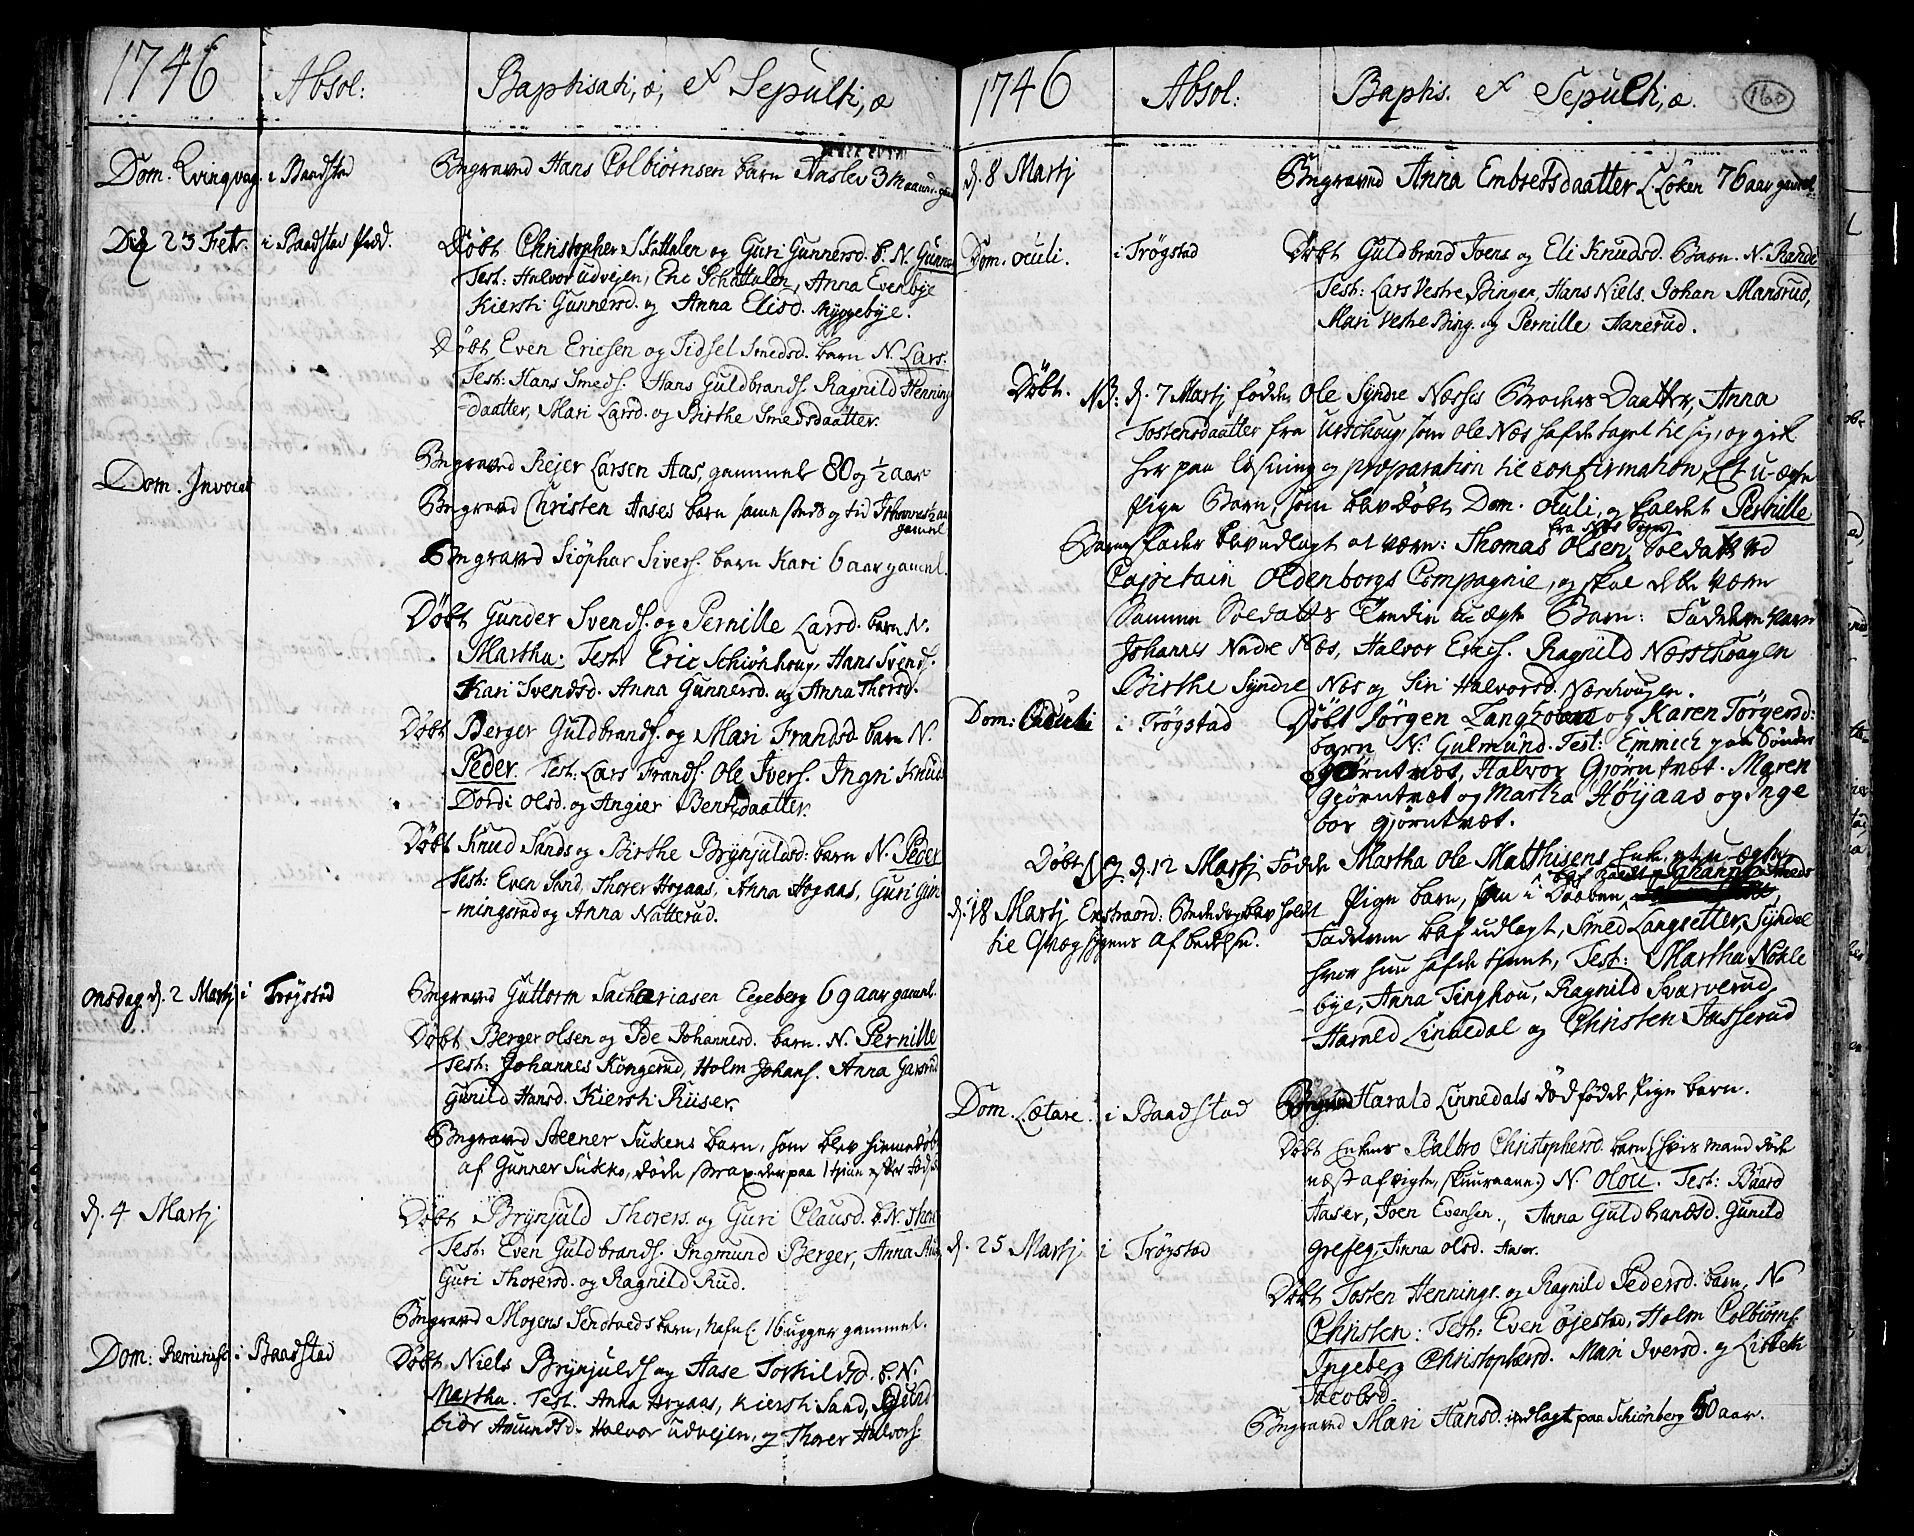 1746 Absol: Baptisati, æ, et Sepulti, æ
Dom. Qvinqvag. i Baadstad Begraved Hans Colbiörnsen barn Aaslev 3 maaned. gam
D. 23 Febr. i Baadstad præd. Döbt Christopher Skattalen og Guri Gunnersd. b. N. Gunner
Test: Halvor udvejen, Eric Schattalen, Anna Evenbye
Kiersti Gunnersd. og Anna Elisd. Myggebye.
Döbt Even Ericsen og Sidsel Smedsd. barn N. Lars.
Test: Hans Smeds. Hans Guldbrands. Ragnild Henning
-daatter, Mari Larsd. og Birthe Smedsdaatter.
Dom. Invocat Begraved Rejer Larsen Aas, gammel 80 og ½ aar
Begraved Christen Aases barn samme steds og tid Johannes ½ aar
gammel
Begraved Siöphar Sivers. barn Kari 6 aar gamel.
Döbt Gunder Svends. og Pernille Larsd. barn N.
Martha. Test. Eric Schiönhoug, Hans Svends.
Kari Svendsd. Anna Gunnersd. og Anna Thorsd.
Döbt Berger Guldbrands. og Mari Frandsd. barn N.
Peder. Test: Lars Frands. Ole Ivers. Ingri Knuds
Dordi Olsd. og Angier Bentsdaatter.
Döbt Knud Sands og Birthe Brynjulsd: barn N. Peder
Test: Even Sand, Thorer Hogaas, Anna Hogaas, Guri Gim
-mingsrud og Anna Natterud.
Onsdag d. 2 Martj i Trögstad Begraved Guttorm Sachariasen Eegeberg 69 aar gamel.
Döbt Berger Olsen og Ide Johannesd. barn. N. Pernille
Test: Johannes Kongerud, Holm Johans. Anna Garsrud
Gunild Hansd. Kiersti Ruser.
Begraved Steener Suckens barn, som blev hiemmedöbt
af Gunner Sukko, döde strax derpaa 1 time efter Föds.
d. 4 Martj Döbt Brynjuld Thorers. og Guri Clausd. b. N. Thor
Test: Even Guldbrands. Ingmund Berger, Anna Rud
Guri Thorersd. og Ragnild Rud.
Begraved Mogens Sendtveds barn, Nafnl. 16 ugger gammel.
Dom: Reminisc. i Baadstad Döbt Niels Brynjulds og Aase Torkildsd. b. N.
Martha. Test. Anna Hogaas, Kiersti Sand,
Amundsd. Halvor Udvejen, og Thorer Halvors.
1746 Absol: Baptis. et Sepulti, æ. 160
d. 8 Martj Begraved Anna Embretsdaatter L. Löken 76 aar gamel
Dom. Oculi. i Trögstad Döbt Guldbrand Joens og Eli Knudsd. Barn N. Randi
Test: Lars Vestre Bingen, Hans Niels. Johan Mansrud,
Mari Vestre Bing. og Pernille Aanerud.
Döbt. NB: d. 7 Martj födde Ole Syndre Næsses Broders Daatter, Anna
Tostensdaatter fra Urschoug, som Ole Næs hafde taget til sig, og gik
her paa læsning og præparation til confirmation, et u-ægte
Pige Barn, som blev döbt Dom. Oculi, og kaldet Pernille
Barnefader blev udlagt at være: Thomas Olsen fra Næs Sogn, Soldat ved
Capitain Oldenborgs Compagnie, og skal dette være
Samme Soldatts Tredie u-ægte Barn: Faddere vare
Johannes Nædre Næs, Halvor Erics. Ragnild Næsschougen
Birthe Syndre Næs og Siri Halvorsd. Næschougen.
Dom: Oculi i Trögstad Döbt Jörgen og Karen Törgersd:
barn N: Gulmund. Test: Emmich paa Sönder
Gjörntvæt, Halvor Gjörntvæt. Maren
Gjörntvæt og Martha Höijaas og Inge
bor Gjörntvæt.
Döbt Og d. 12 Martj Födde Martha Ole Matthisens Enke, et u-ægte
Pige barn, som i Daaben blef kaldt
d. 18 Martj Extraord: Bededag blev holdt
til Qvægsygens afbedelse.
Faderen blef udlagt, Smed Langsetter, Syndal
hvor hun hafde tient, Test: Martha Nokle
-bye, Anna Tinghou, Ragnild Svarverud,
Harald Linnedal og Christen Jasserud
Dom. Lætare. i Baadstad Begraved Harald Linnedals död födde Pige barn.
Döbt Enken Aalbro Christophersd. barn (hvis mand döde
næst afvigte, N. Olou. Test: Baard
Aaser, Joen Evensen., Anna Guldbrandsd. Gunild
Grefeg, Anna Olsd. Aaser.
d. 25 Martj i Trögstad Döbt Tosten Hennings. og Ragnild Pedersd. barn, N.
Christen: Test: Even Öjestad, Holm Colbiörns.
Ingeberg Christophersd. Mari Iversd. og Lisbeth
Jacobsd.
Begraved Mari Hansd. indlagt paa Schiönberg 50 aar.